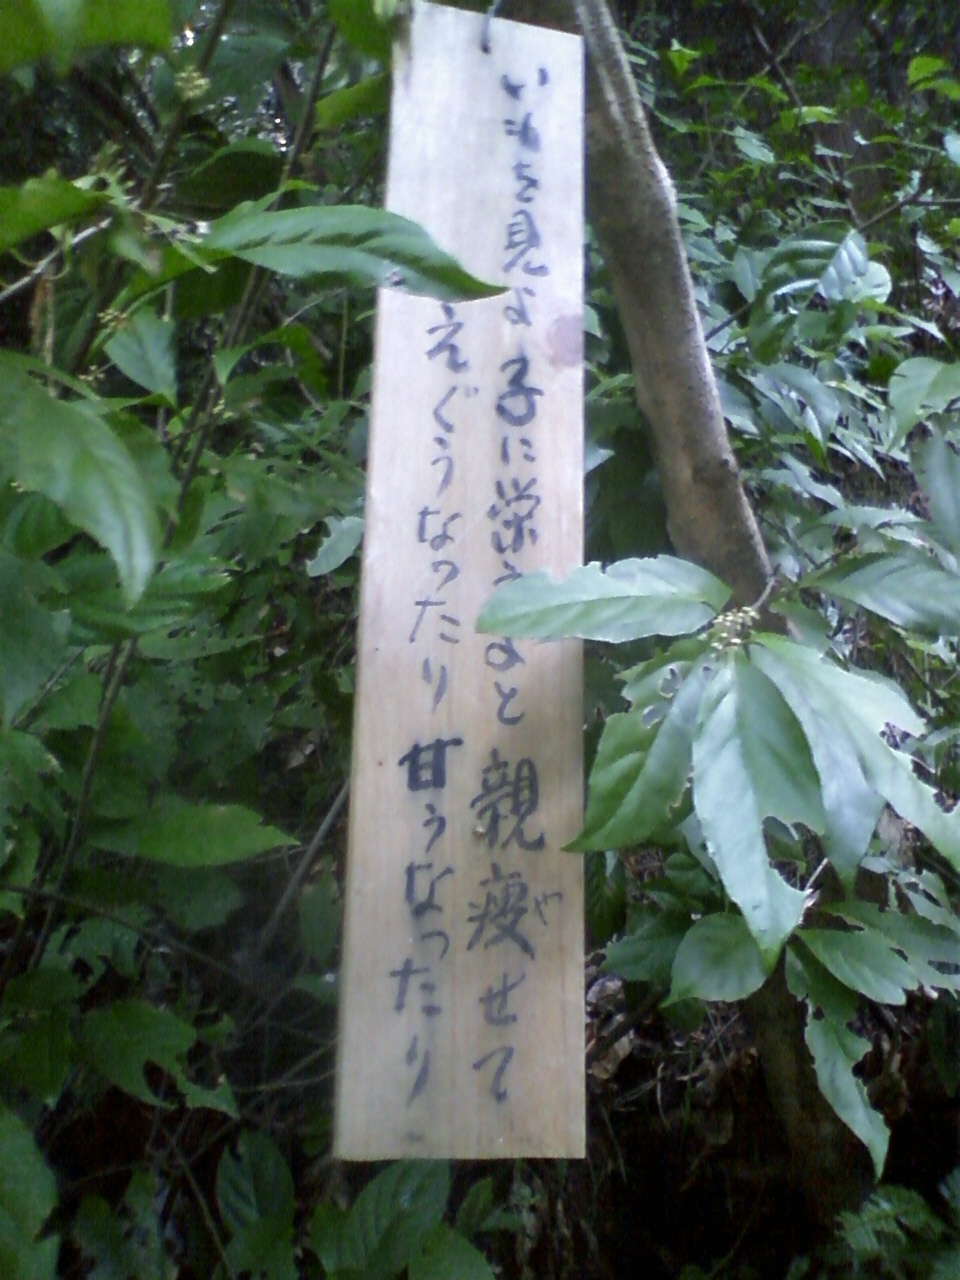 いもを見よ子に栄えよと親痩せて
や
えぐうなったり甘うなったり